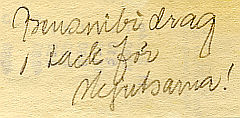 Bensinbidrag
i tack för
skjutsarna!